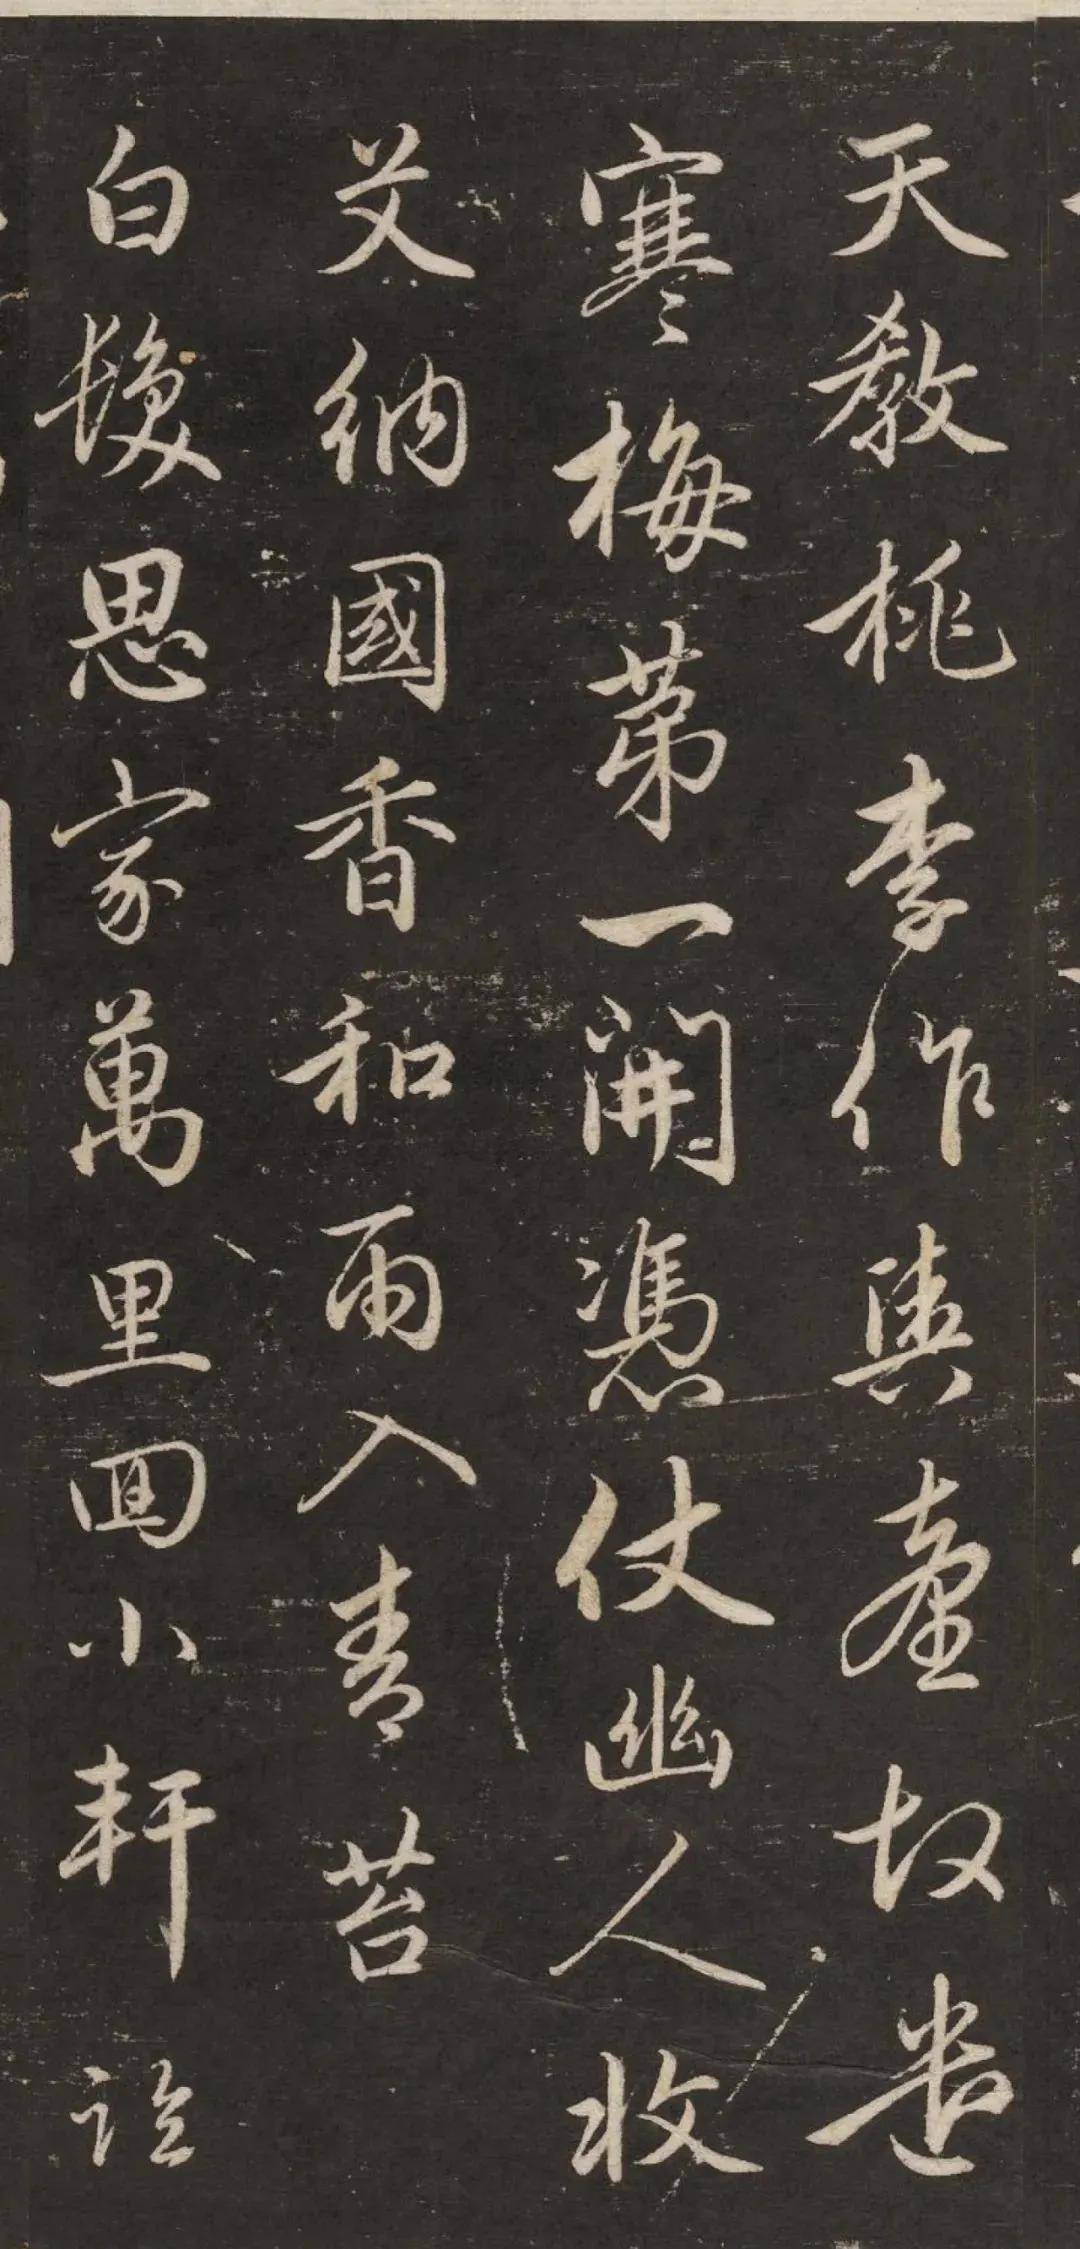 天教桃李作輿臺故遣
寒梅苐一開憑仗幽人收
艾納國香和雨入青苔
白髮思家萬里回小軒